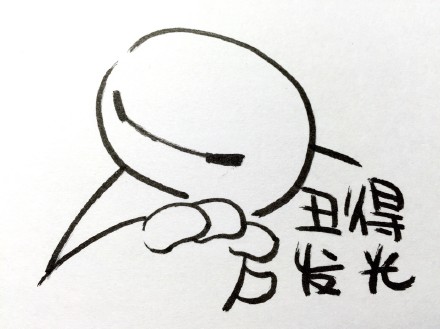 丑得
发光